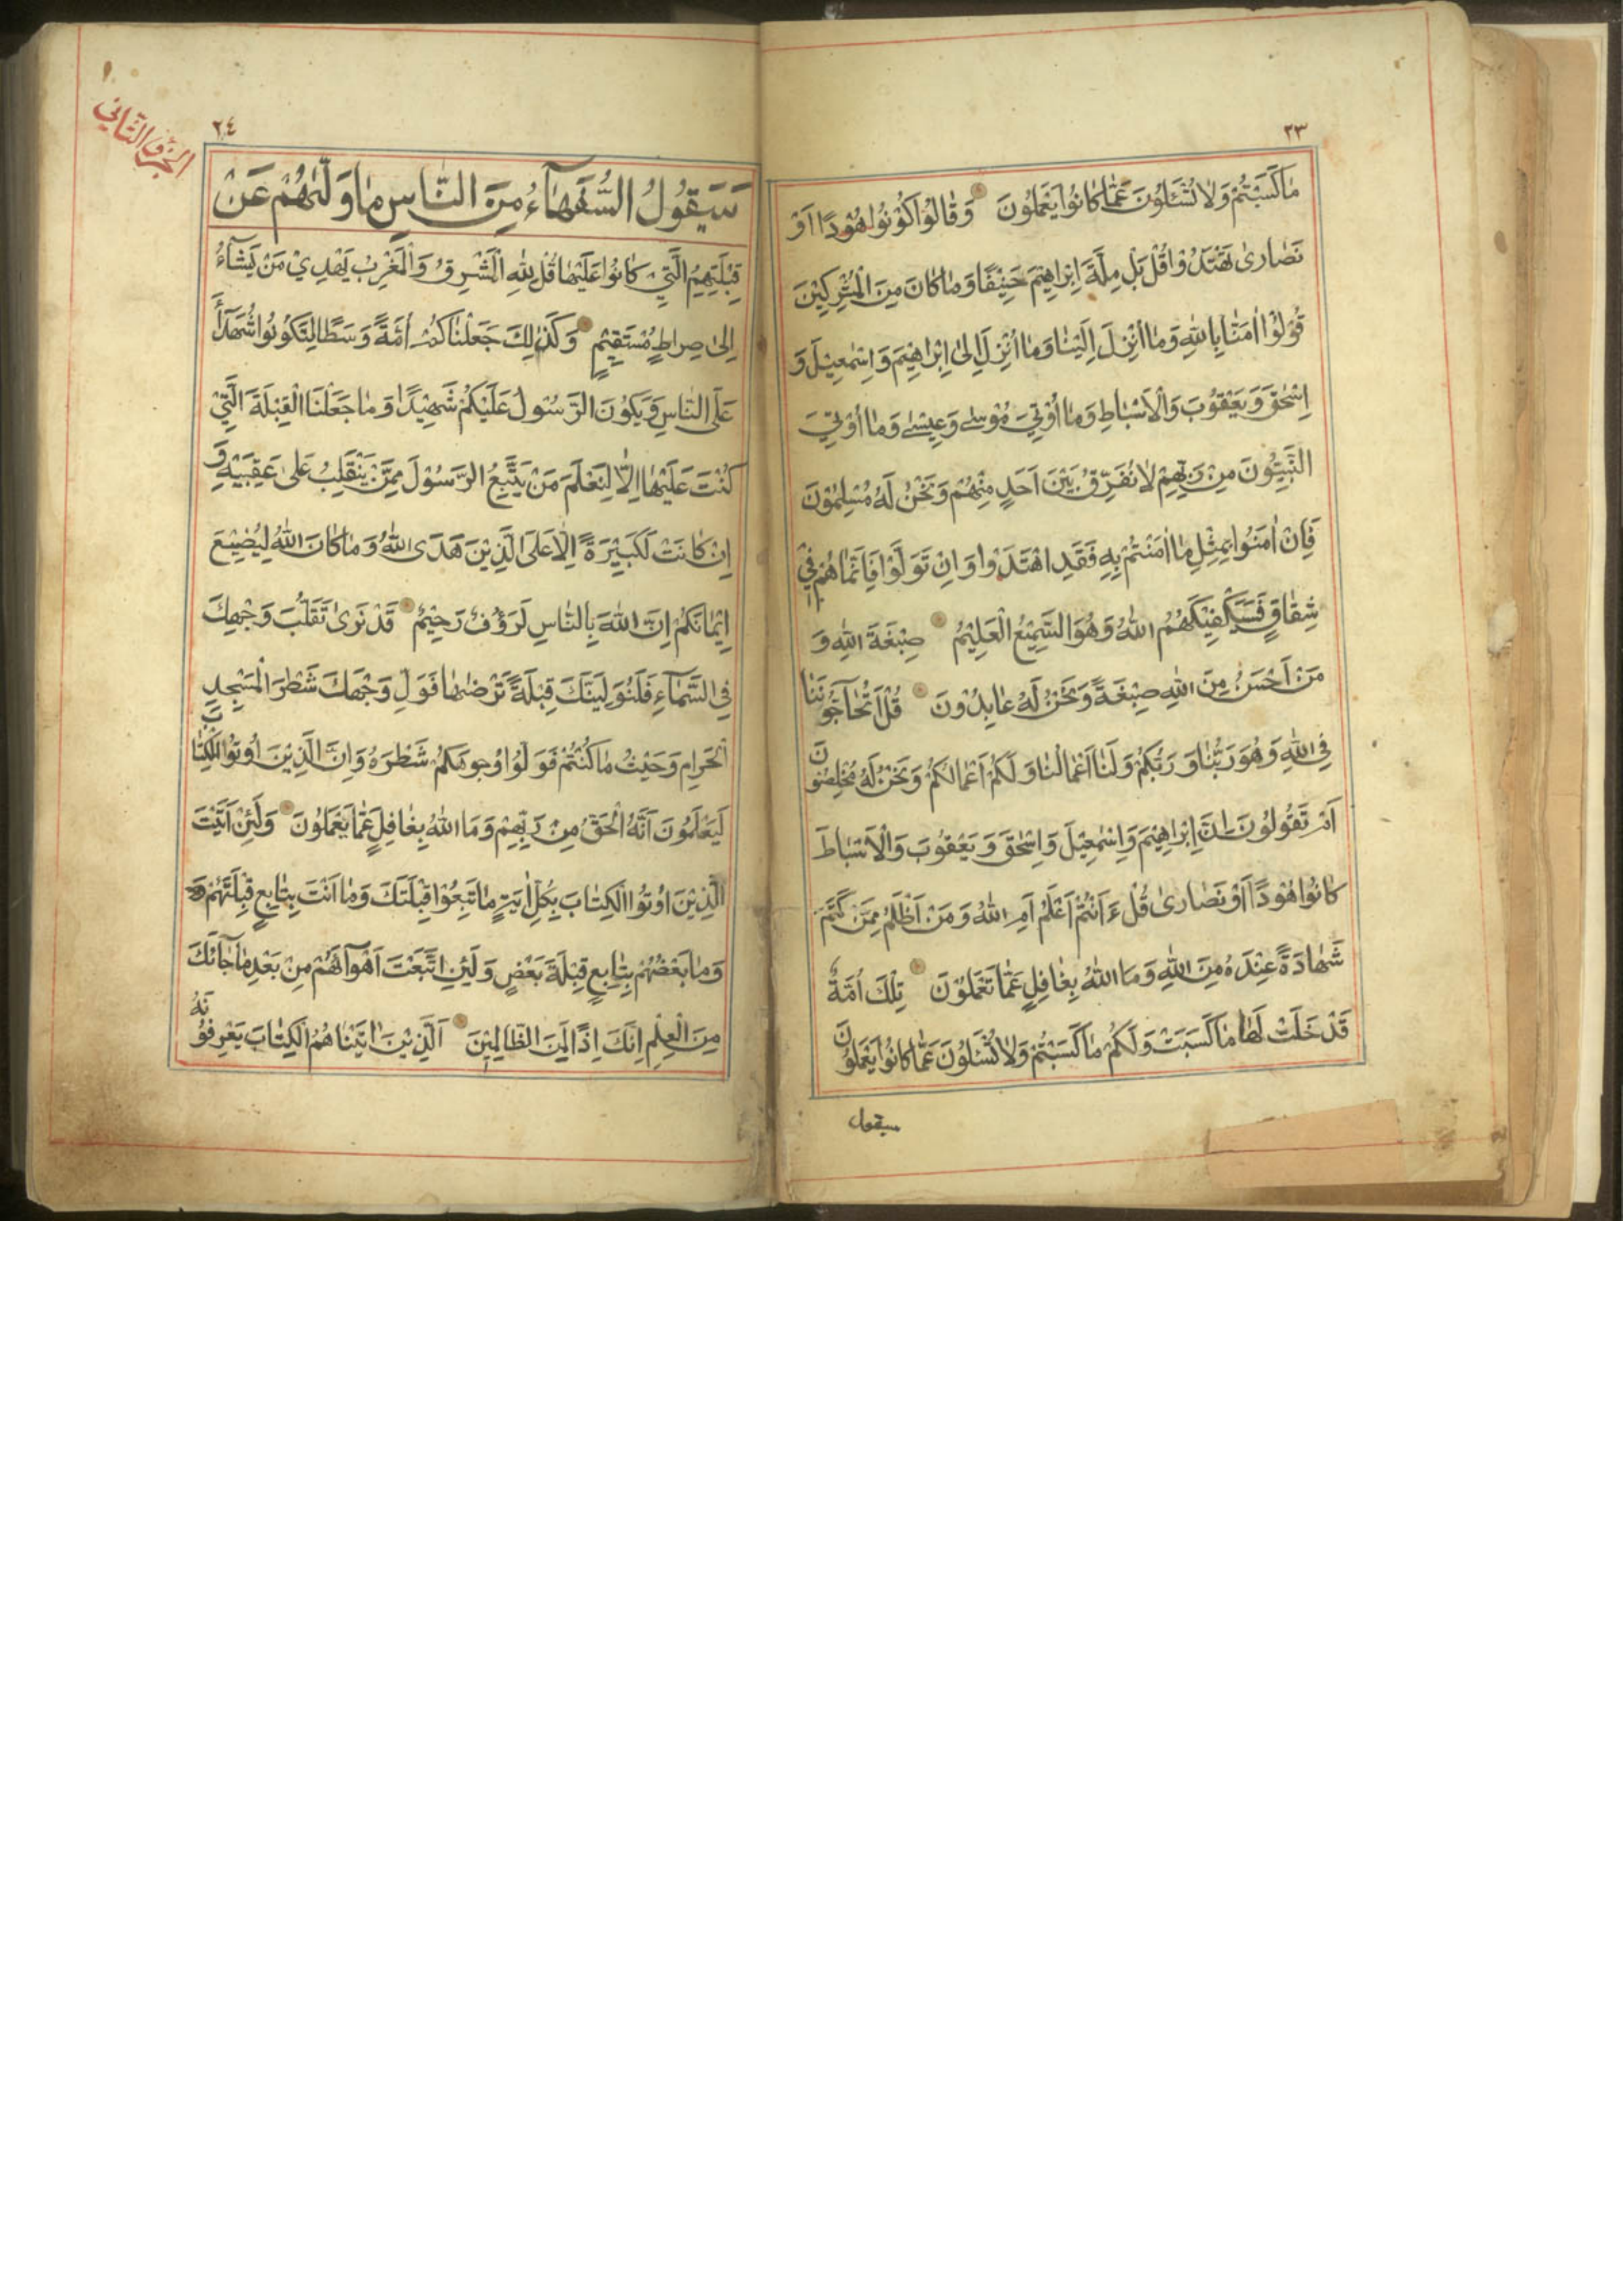 ٢٣
مٰا كَسَبْتُمْ وَلاٰ تُسْئَلُونَ عَمّٰا كٰانُوا يَعْمَلُونَ وَقٰالُوا كُوْنُوا هُوْدًا اَوْ
نَصٰارىٰ تَهْتَدُوْا قُلْ بَلْ مِلَّةَ اِبْرٰاهِيْمَ حَنِيْفًا وَمٰا كٰانَ مِنَ الْمُشْرِكِيْنَ
قُوْلُوْا اٰمَنّٰا بِاللهِ وَمٰا اُنْزِلَ اِلَيْنٰا وَمٰا اُنْزِلَ اِلىٰ اِبْرٰاهِيْمَ وَاِسْمٰعِيْلَ وَ
اِسْحٰقَ وَيَعْقُوْبَ وَالْاَسْبٰاطِ وَمٰا اُوْتِيَ مُوْسٰى وَعِيْسٰى وَمٰا اُوْتِيَ
النَّبِيُّوْنَ مِنْ رَبِّهِمْ لاٰ نُفَرِّقُ بَيْنَ اَحَدٍ مِنْهُمْ وَنَحْنُ لَهُ مُسْلِمُوْنَ
فَاِنْ اٰمَنُوْا بِمِثْلِ مٰا اٰمَنْتُمْ بِهِ فَقَدِ اهْتَدَوْا وَاِنْ تَوَلَّوْا فَاِنَّمٰا هُمْ فِيْ
شِقٰاقٍ فَسَيَكْفِيْكَهُمُ اللهُ وَهُوَ السَّمِيْعُ الْعَلِيْمُ صِبْغَةَ اللهِ وَ
مَنْ اَحْسَنُ مِنَ اللهِ صِبْغَةً وَنَحْنُ لَهُ عٰابِدُوْنَ قُلْ اَتُحٰاجُّوْنَنٰا
فِي اللهِ وَهُوَ رَبُّنٰا وَرَبُّكُمْ وَلَنٰا اَعْمٰالُنٰا وَلَكُمْ اَعْمٰالُكُمْ وَنَحْنُ لَهُ مُخْلِصُوْنَ
اَمْ تَقُوْلُوْنَ اِنَّ اِبْرٰاهِيْمَ وَاِسْمٰعِيْلَ وَاِسْحٰقَ وَيَعْقُوْبَ وَالْاَسْبٰاطَ
كٰانُوْا هُوْدًا اَوْ نَصٰارىٰ قُلْ ءَاَنْتُمْ اَعْلَمُ اَمِ اللهُ وَمَنْ اَظْلَمُ مِمَّنْ كَتَمَ
شَهٰادَةً عِنْدَهُ مِنَ اللهِ وَمَا اللهُ بِغٰافِلٍ عَمّٰا تَعْمَلُوْنَ تِلْكَ اُمَّةٌ
قَدْ خَلَتْ لَهٰا مٰا كَسَبَتْ وَلَكُمْ مٰا كَسَبْتُمْ وَلاٰ تُسْئَلُوْنَ عَمّٰا كٰانُوْا يَعْمَلُوْنَ
سيقول
٢٤
الجزء الثاني
سَيَقُوْلُ السُّفَهٰآءُ مِنَ النّٰاسِ مٰا وَلّٰىهُمْ عَنْ
قِبْلَتِهِمُ الَّتِيْ كٰانُوْا عَلَيْهٰا قُلْ لِلّٰهِ الْمَشْرِقُ وَالْمَغْرِبُ يَهْدِيْ مَنْ يَشٰآءُ
اِلىٰ صِرٰاطٍ مُسْتَقِيْمٍ وَكَذٰلِكَ جَعَلْنٰاكُمْ اُمَّةً وَسَطًا لِتَكُوْنُوْا شُهَدٰآءَ
عَلَى النّٰاسِ وَيَكُوْنَ الرَّسُوْلُ عَلَيْكُمْ شَهِيْدًا وَمٰا جَعَلْنَا الْقِبْلَةَ الَّتِيْ
كُنْتَ عَلَيْهٰا اِلّٰا لِنَعْلَمَ مَنْ يَتَّبِعُ الرَّسُوْلَ مِمَّنْ يَنْقَلِبُ عَلىٰ عَقِبَيْهِ وَ
اِنْ كٰانَتْ لَكَبِيْرَةً اِلّٰا عَلَى الَّذِيْنَ هَدَى اللهُ وَمٰا كٰانَ اللهُ لِيُضِيْعَ
اِيْمٰانَكُمْ اِنَّ اللهَ بِالنّٰاسِ لَرَؤُفٌ رَحِيْمٌ قَدْ نَرىٰ تَقَلُّبَ وَجْهِكَ
فِي السَّمٰآءِ فَلَنُوَلِّيَنَّكَ قِبْلَةً تَرْضٰىهٰا فَوَلِّ وَجْهَكَ شَطْرَ الْمَسْجِدِ
الْحَرٰامِ وَحَيْثُ مٰا كُنْتُمْ فَوَلُّوْا وُجُوْهَكُمْ شَطْرَهُ وَاِنَّ الَّذِيْنَ اُوْتُوا الْكِتٰابَ
لَيَعْلَمُوْنَ اَنَّهُ الْحَقُّ مِنْ رَبِّهِمْ وَمَا اللهُ بِغٰافِلٍ عَمّٰا يَعْمَلُوْنَ وَلَئِنْ اَتَيْتَ
الَّذِيْنَ اُوْتُوا الْكِتٰابَ بِكُلِّ اٰيَةٍ مٰا تَبِعُوْا قِبْلَتَكَ وَمٰا اَنْتَ بِتٰابِعٍ قِبْلَتَهُمْ
وَمٰا بَعْضُهُمْ بِتٰابِعٍ قِبْلَةَ بَعْضٍ وَلَئِنِ اتَّبَعْتَ اَهْوٰآئَهُمْ مِنْ بَعْدِ مٰا جٰآئَكَ
مِنَ الْعِلْمِ اِنَّكَ اِذًا لَمِنَ الظّٰالِمِيْنَ اَلَّذِيْنَ اٰتَيْنٰاهُمُ الْكِتٰابَ يَعْرِفُوْنَهُ